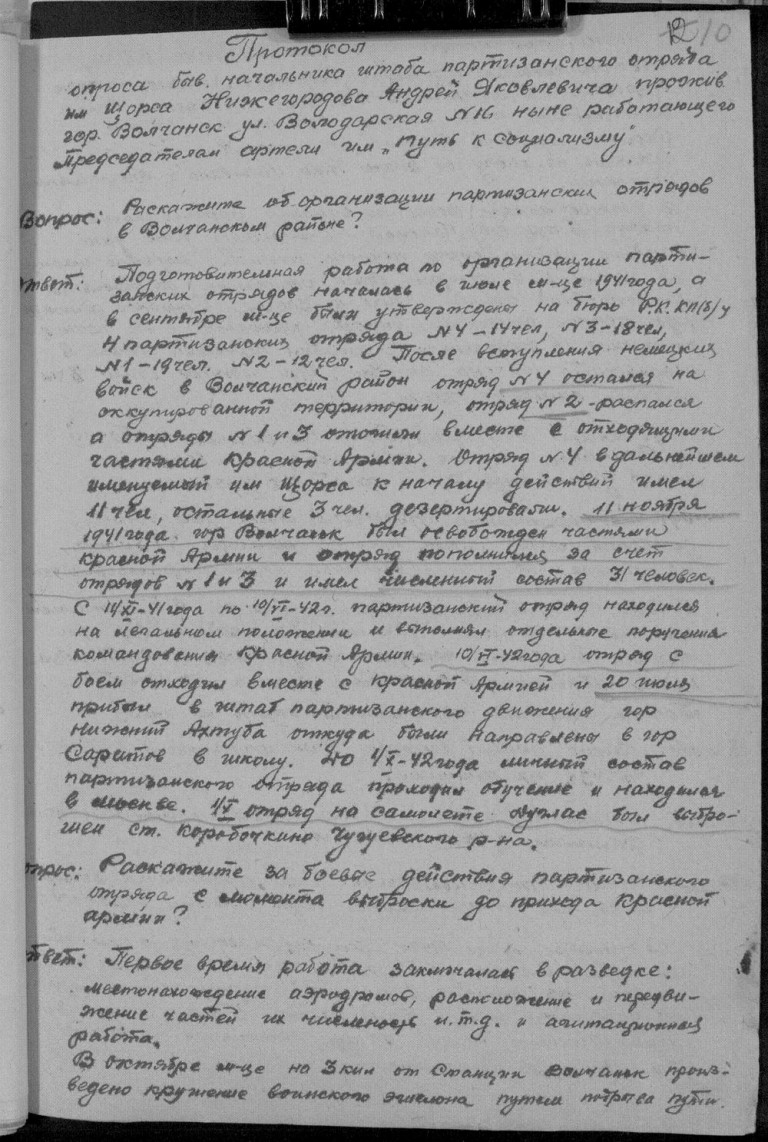 12 10
Протокол
опроса быв. начальника штаба партизанского отряда
им Щорса Нижегородова Андрей Яковлевича прожив.
гор. Волчанск ул. Володарская N16 ныне работающего
Председателем артели им „Путь к социализму"
Вопрос: Раскажите об организации партизанских отрядов
в Волчанском районе?
твет: Подготовительная работа по организации парти-
занских отрядов началась в июле м-це 1941 года, а
в сентябре м-це были утверждены на бюро Р.К. КП/б/у
4 партизанских отряда N4-14чел, N3-18чел,
N1-19чел. N2-12чел. После вступления немецких
войск в Волчанский район отряд N4 остался на
оккупированной территории, отряд N2 -распался
а отряды N1 и 3 отошли вместе с отходящими
частями Красной Армии. Отряд N4 в дальнейшем
именуемый им Щорса к началу действий имел
11 чел, остальные 3 чел. дезертировали. 11 ноября
1941 года гор Волчанск был освобожден частями
красной Армии и отряд пополнился за счет
отрядов N1 и 3 и имел численный состав 31 человек.
С 11/XI-41 года по 10/VI-42г. партизанский отряд находился
на легальном положении и выполнял отдельные поручения
командования Красной Армии. 10/VI-42 года отряд с
боем отходил вместе с красной Армией и 20 июля
прибыл в штаб партизанского движения гор
Нижний Ахтуба откуда были направлены в гор
Саратов в школу. До 1/X-42 года личный состав
партизанского отряда проходил обучение и находился
в Москве. 1/X отряд на самолете Дуглас был выбро-
шен ст. Коробочкино Чугуевского р-на.
прос: Раскажите за боевые действия партизанского
отряда с момента выброски до прихода Красной
армии?
твет: Первое время работа заключалась в разведке:
местонахождение аэродромов, расположение и передви-
жение частей их численность и.т.д. и агитационная
работа.
В октябре м-це на 3 км от Станции Волчанск произ-
ведено крушение воинского эшелона путем подрыва пути.